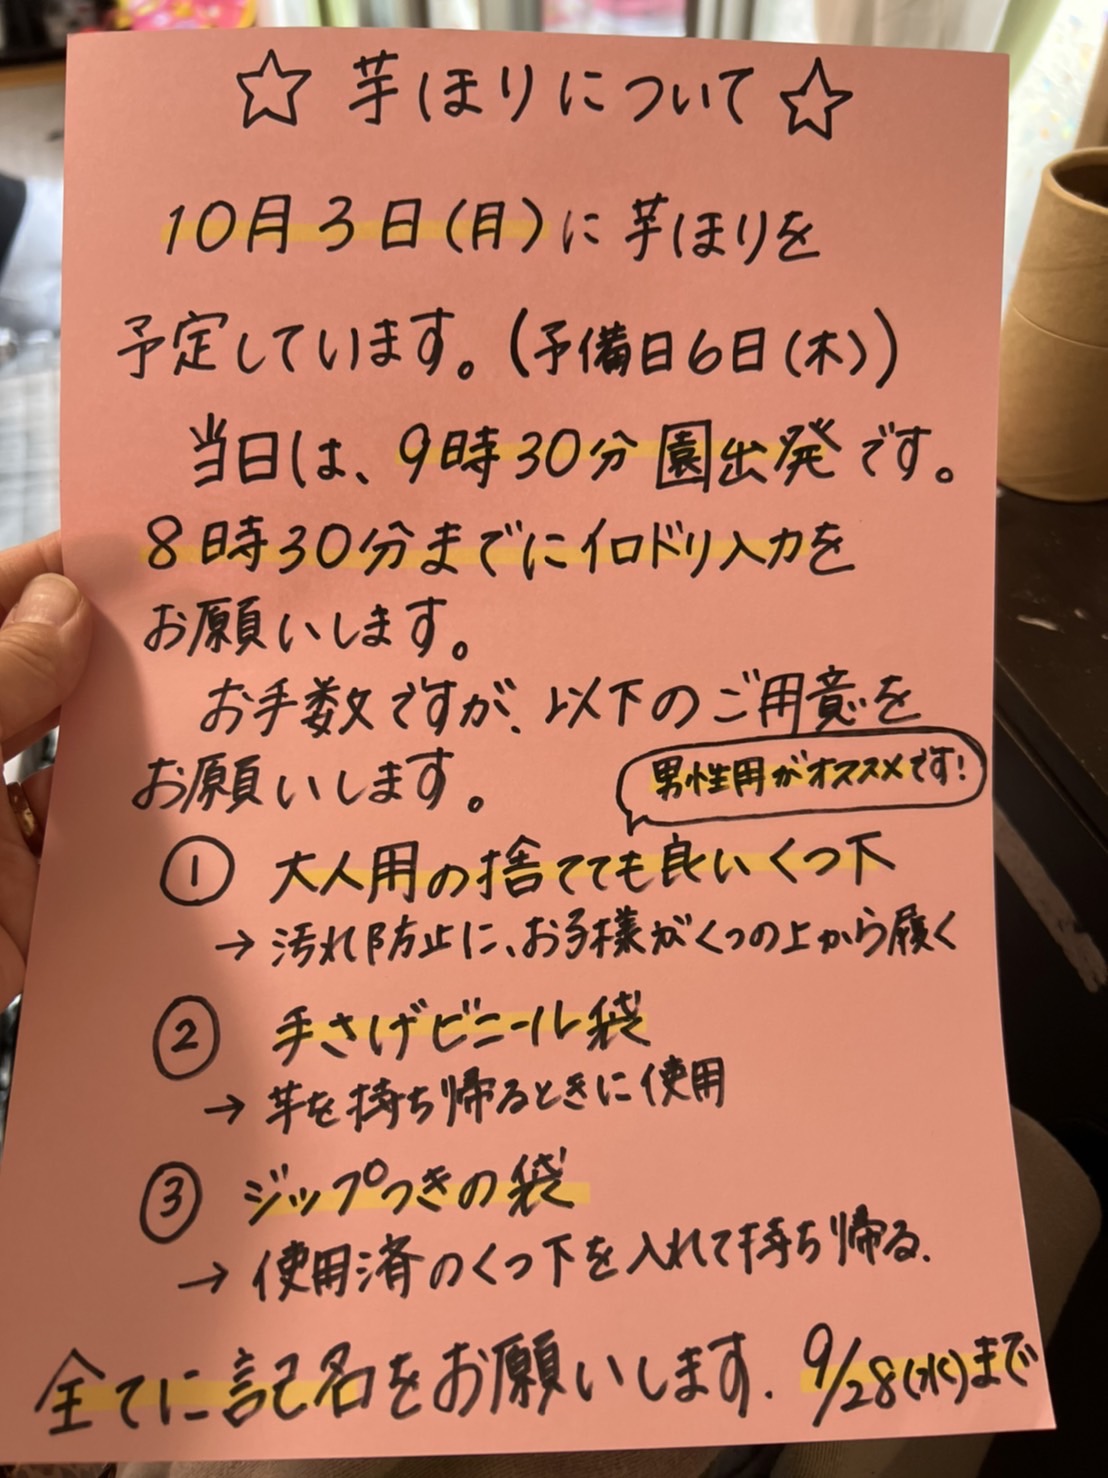 ☆ 芋ほりについて ☆
10月3日(月)に芋ほりを
予定しています。(予備日6日(木))
当日は、9時30分園出発です。
8時30分までにイロドリ入力を
お願いします。
お手数ですが、以下のご用意を
お願いします。
男性用がオススメです!
① 大人用の捨てても良いくつ下
→ 汚れ防止に、お子様がくつの上から履く
② 手さげビニール袋
→ 芋を持ち帰るときに使用
③ ジップつきの袋
→ 使用済のくつ下を入れて持ち帰る.
全てに記名をお願いします. 9/28(水)まで